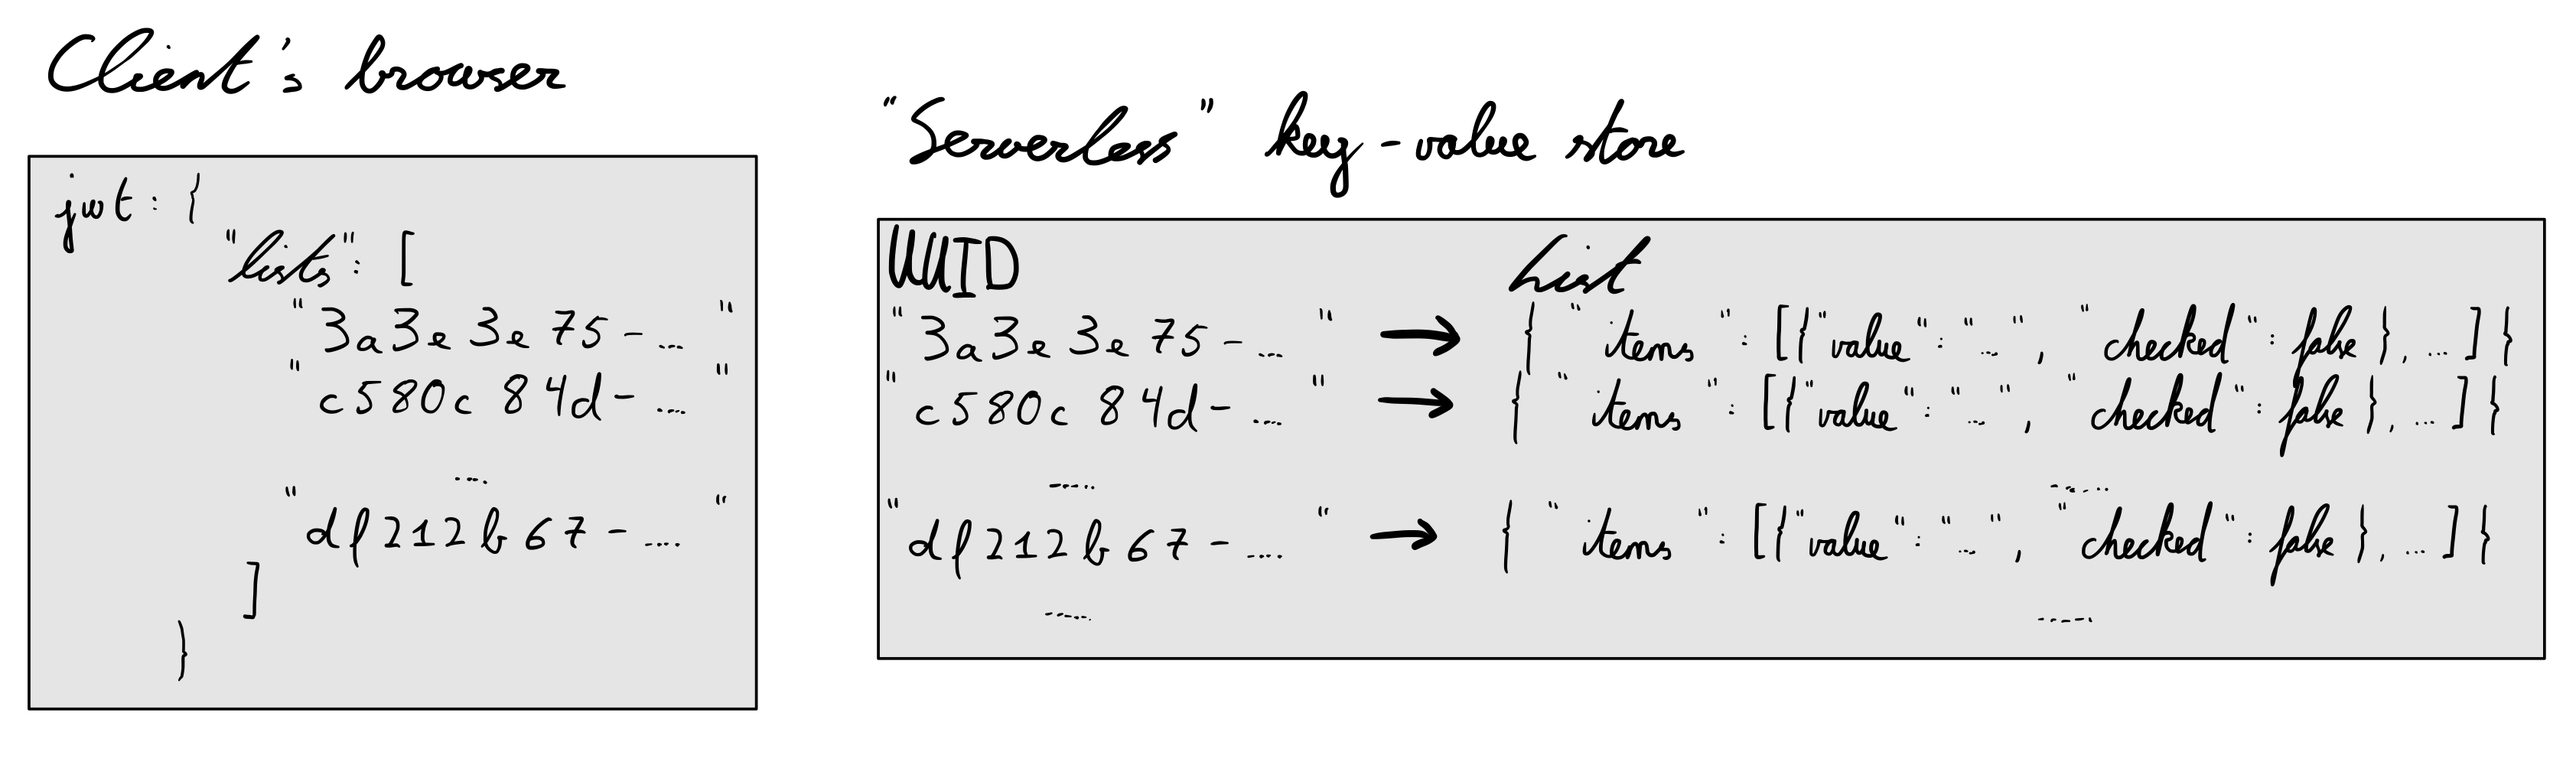 Client's browser
jwt: {
"lists": [
"3a3e3e75-..."
"c580c84d-..."
...
"df212b67-..."
]
}
"Serverless" key-value store
UUID List
"3a3e3e75-..." → { "items": [{"value": "...", "checked": false}, ...]}
"c580c84d-..." → { "items": [{"value": "...", "checked": false}, ...]}
... ...
"df212b67-..." → { "items": [{"value": "...", "checked": false}, ...]}
... ...